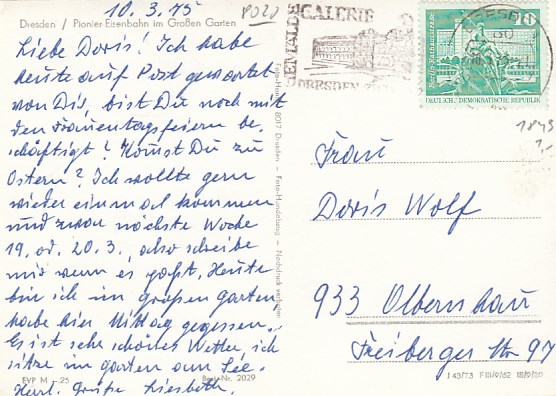 10. 3. 75
Dresden / Pionier Eisenbahn im Großen Garten
Liebe Doris! Ich habe
heute auf Post gewartet
von Dir, bist Du noch mit
den Frauentagsfeiern be-
schäftigt? Kommst Du zu
Ostern? Ich wollte gern
wieder einmal kommen
und zwar nächste Woche
19. od. 20. 3., also schreibe
mir wenn es paßt. Heute
bin ich im großen Garten
habe hier Mittag gegessen.
Es ist sehr schönes Wetter, ich
sitze im Garten am See.
Herzl. Grüße Liesbeth.
EVP M –.25
Best.-Nr. 2029
8017 Dresden – Foto-Handabzug – Nachdruck verboten
GEMÄLDEGALERIE
DRESDEN
DRESDEN
10
DEUTSCHE DEMOKRATISCHE REPUBLIK
1843
1,-
Frau
Doris Wolf
933 Olbernhau
Freiberger Str 97